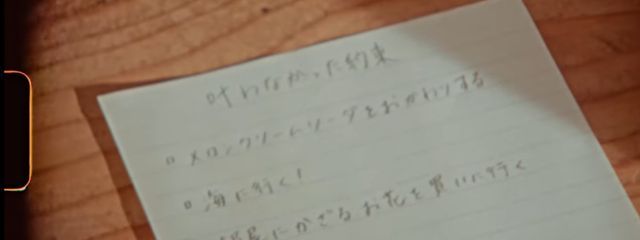 叶わなかった約束
▫ メロンクリームソーダをおかわりする
▫ 海に行く!
部屋にかざるお花を買いに行く